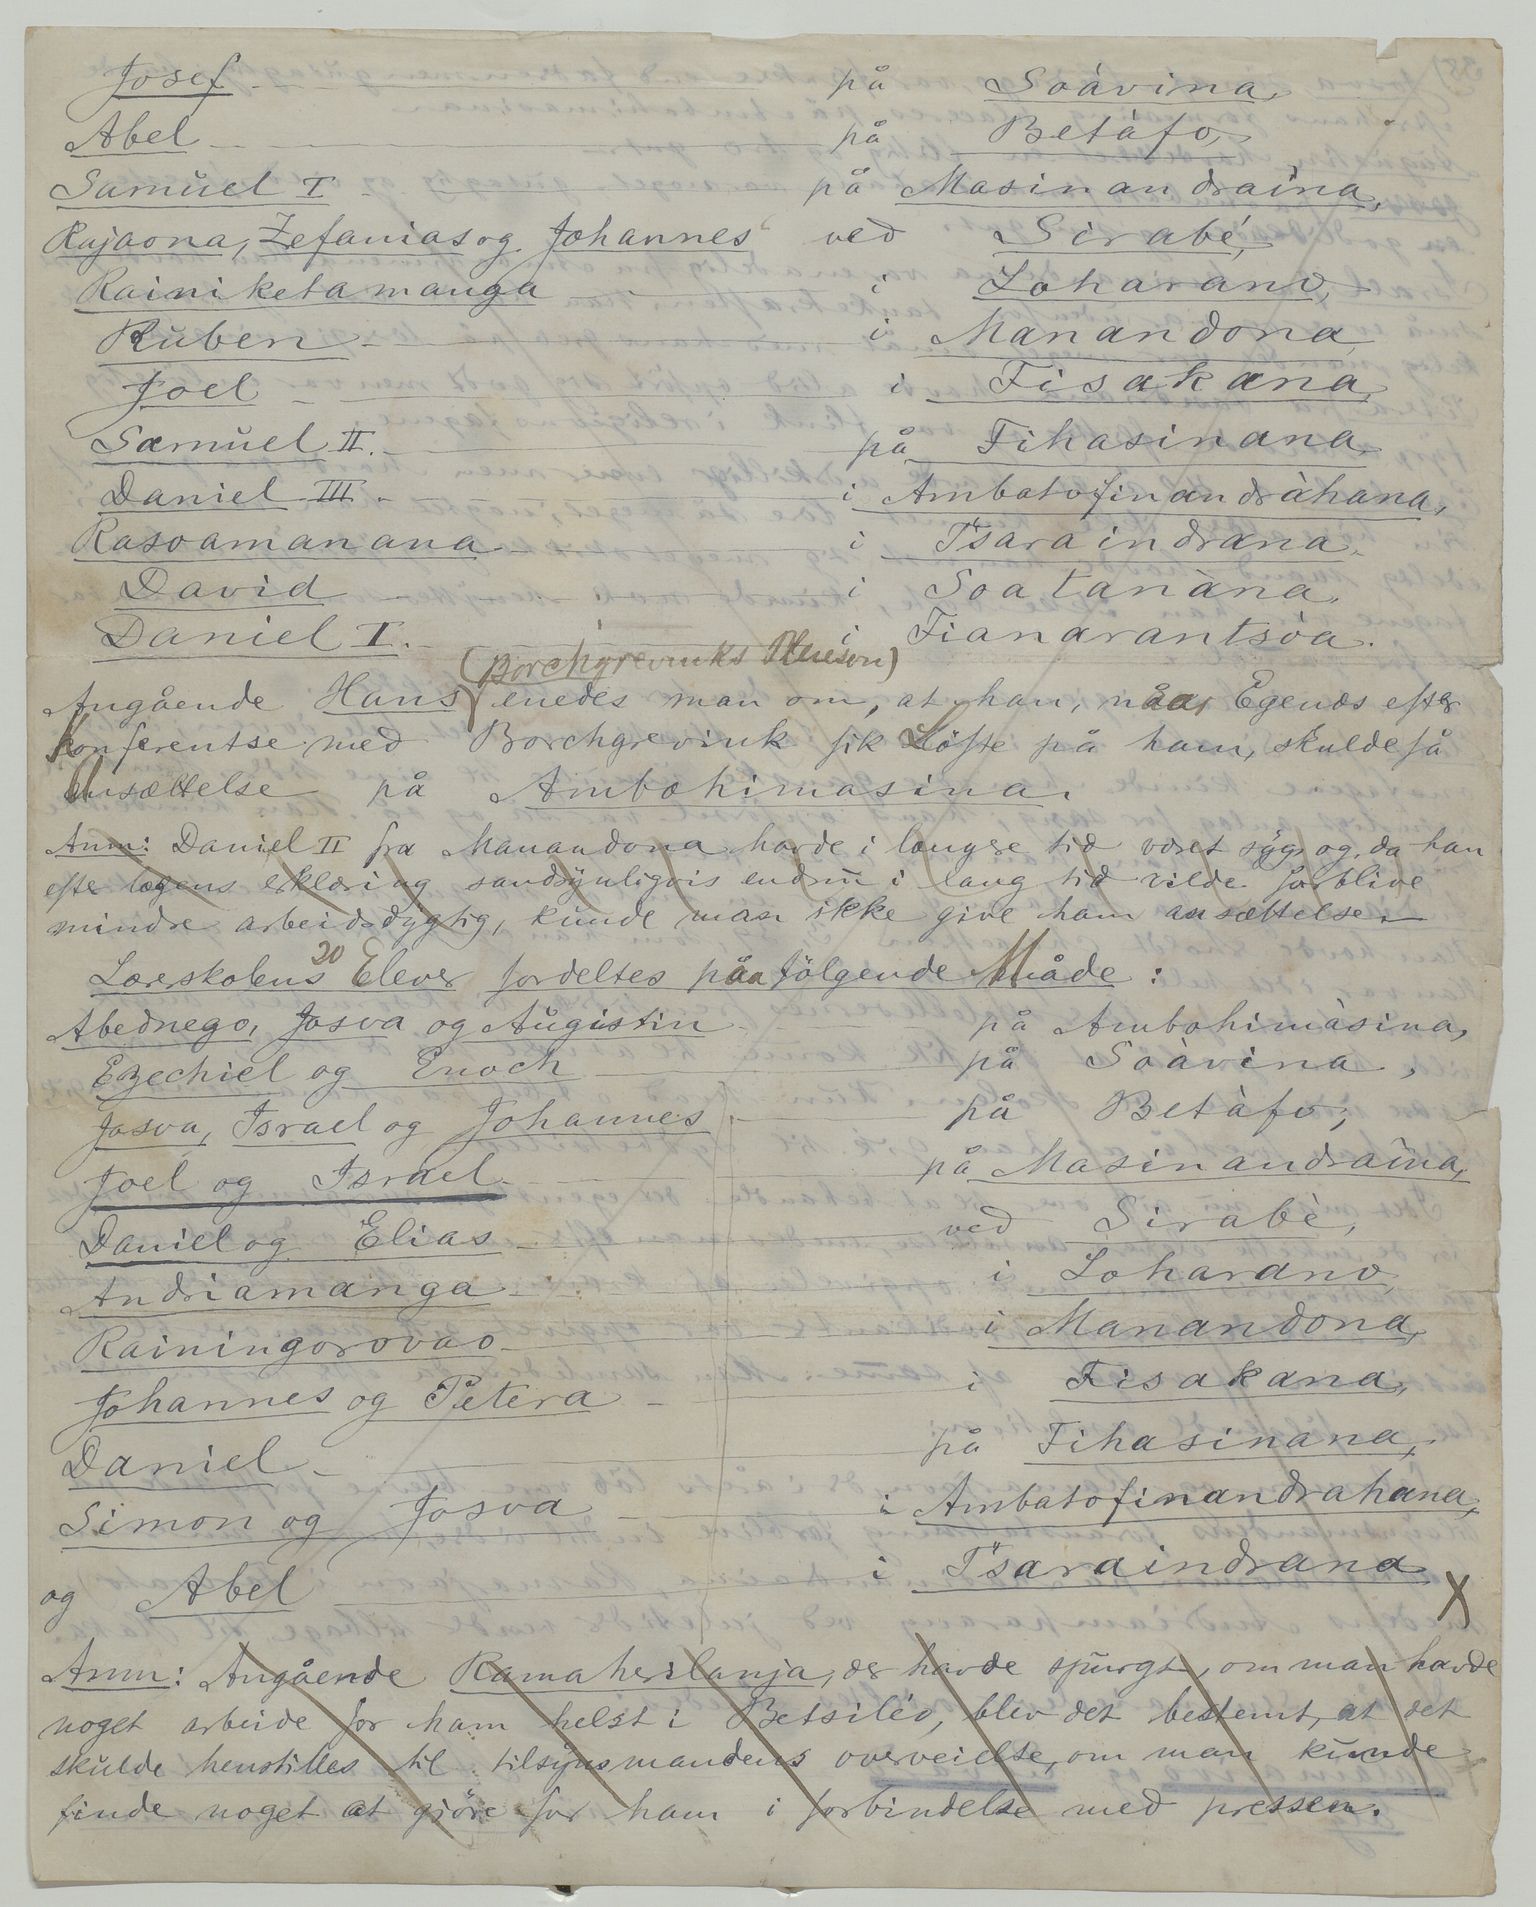 Josef på Soàvina,
Abel på Betàfo,
Samuel I på Masinandraina,
Rajaona, Zefanias og Johannes ved Sirabé,
Rainiketamanga i Loharano,
Ruben i Manandona,
Joel i Fisakana,
Samuel II. på Fihasinana,
Daniel III. i Ambatofinandràhana,
Rasoamanana i Tsaraindrana,
David i Soatanàna,
Daniel I. i Fianarantsòa.
(Borchgrevinks)
Angående Hans enedes man om, at han, naar Egenæs efter
Konferentse med Borchgrevink fik Löfte på ham, skulde få
Ansættelse på Ambohimasina.
Anm: Daniel II fra Manandona havde i længre tid været syg, og da han
efter lægens erklæring sandsynligvis endnu i lang tid vilde forblive
mindre arbeidsdygtig, kunde man ikke give ham ansættelse.
Lærerskolens 20 Elever fordeltes paa fölgende Måde:
Abednego, Josva og Augustin på Ambohimàsina,
Ezechiel og Enoch på Soàvina,
Josva, Israel og Johannes på Betàfo;
Joel og Israel på Masinandraina,
Daniel og Elias ved Sirabé,
Andriamanga i Loharano,
Rainingorovao i Manandona,
Johannes og Petera i Fisakana,
Daniel på Fihasinana,
Simon og Josva i Ambatofinandrahana,
og Abel i Tsaraindrana X
Anm: Angående Ramaherilanja, der havde spurgt, om man havde
noget arbeide for ham helst i Betsiléo, blev det bestemt, at det
skulde henstilles til tilsynsmandens overveielse, om man kunde
finde noget at gjöre for ham i forbindelse med pressen.